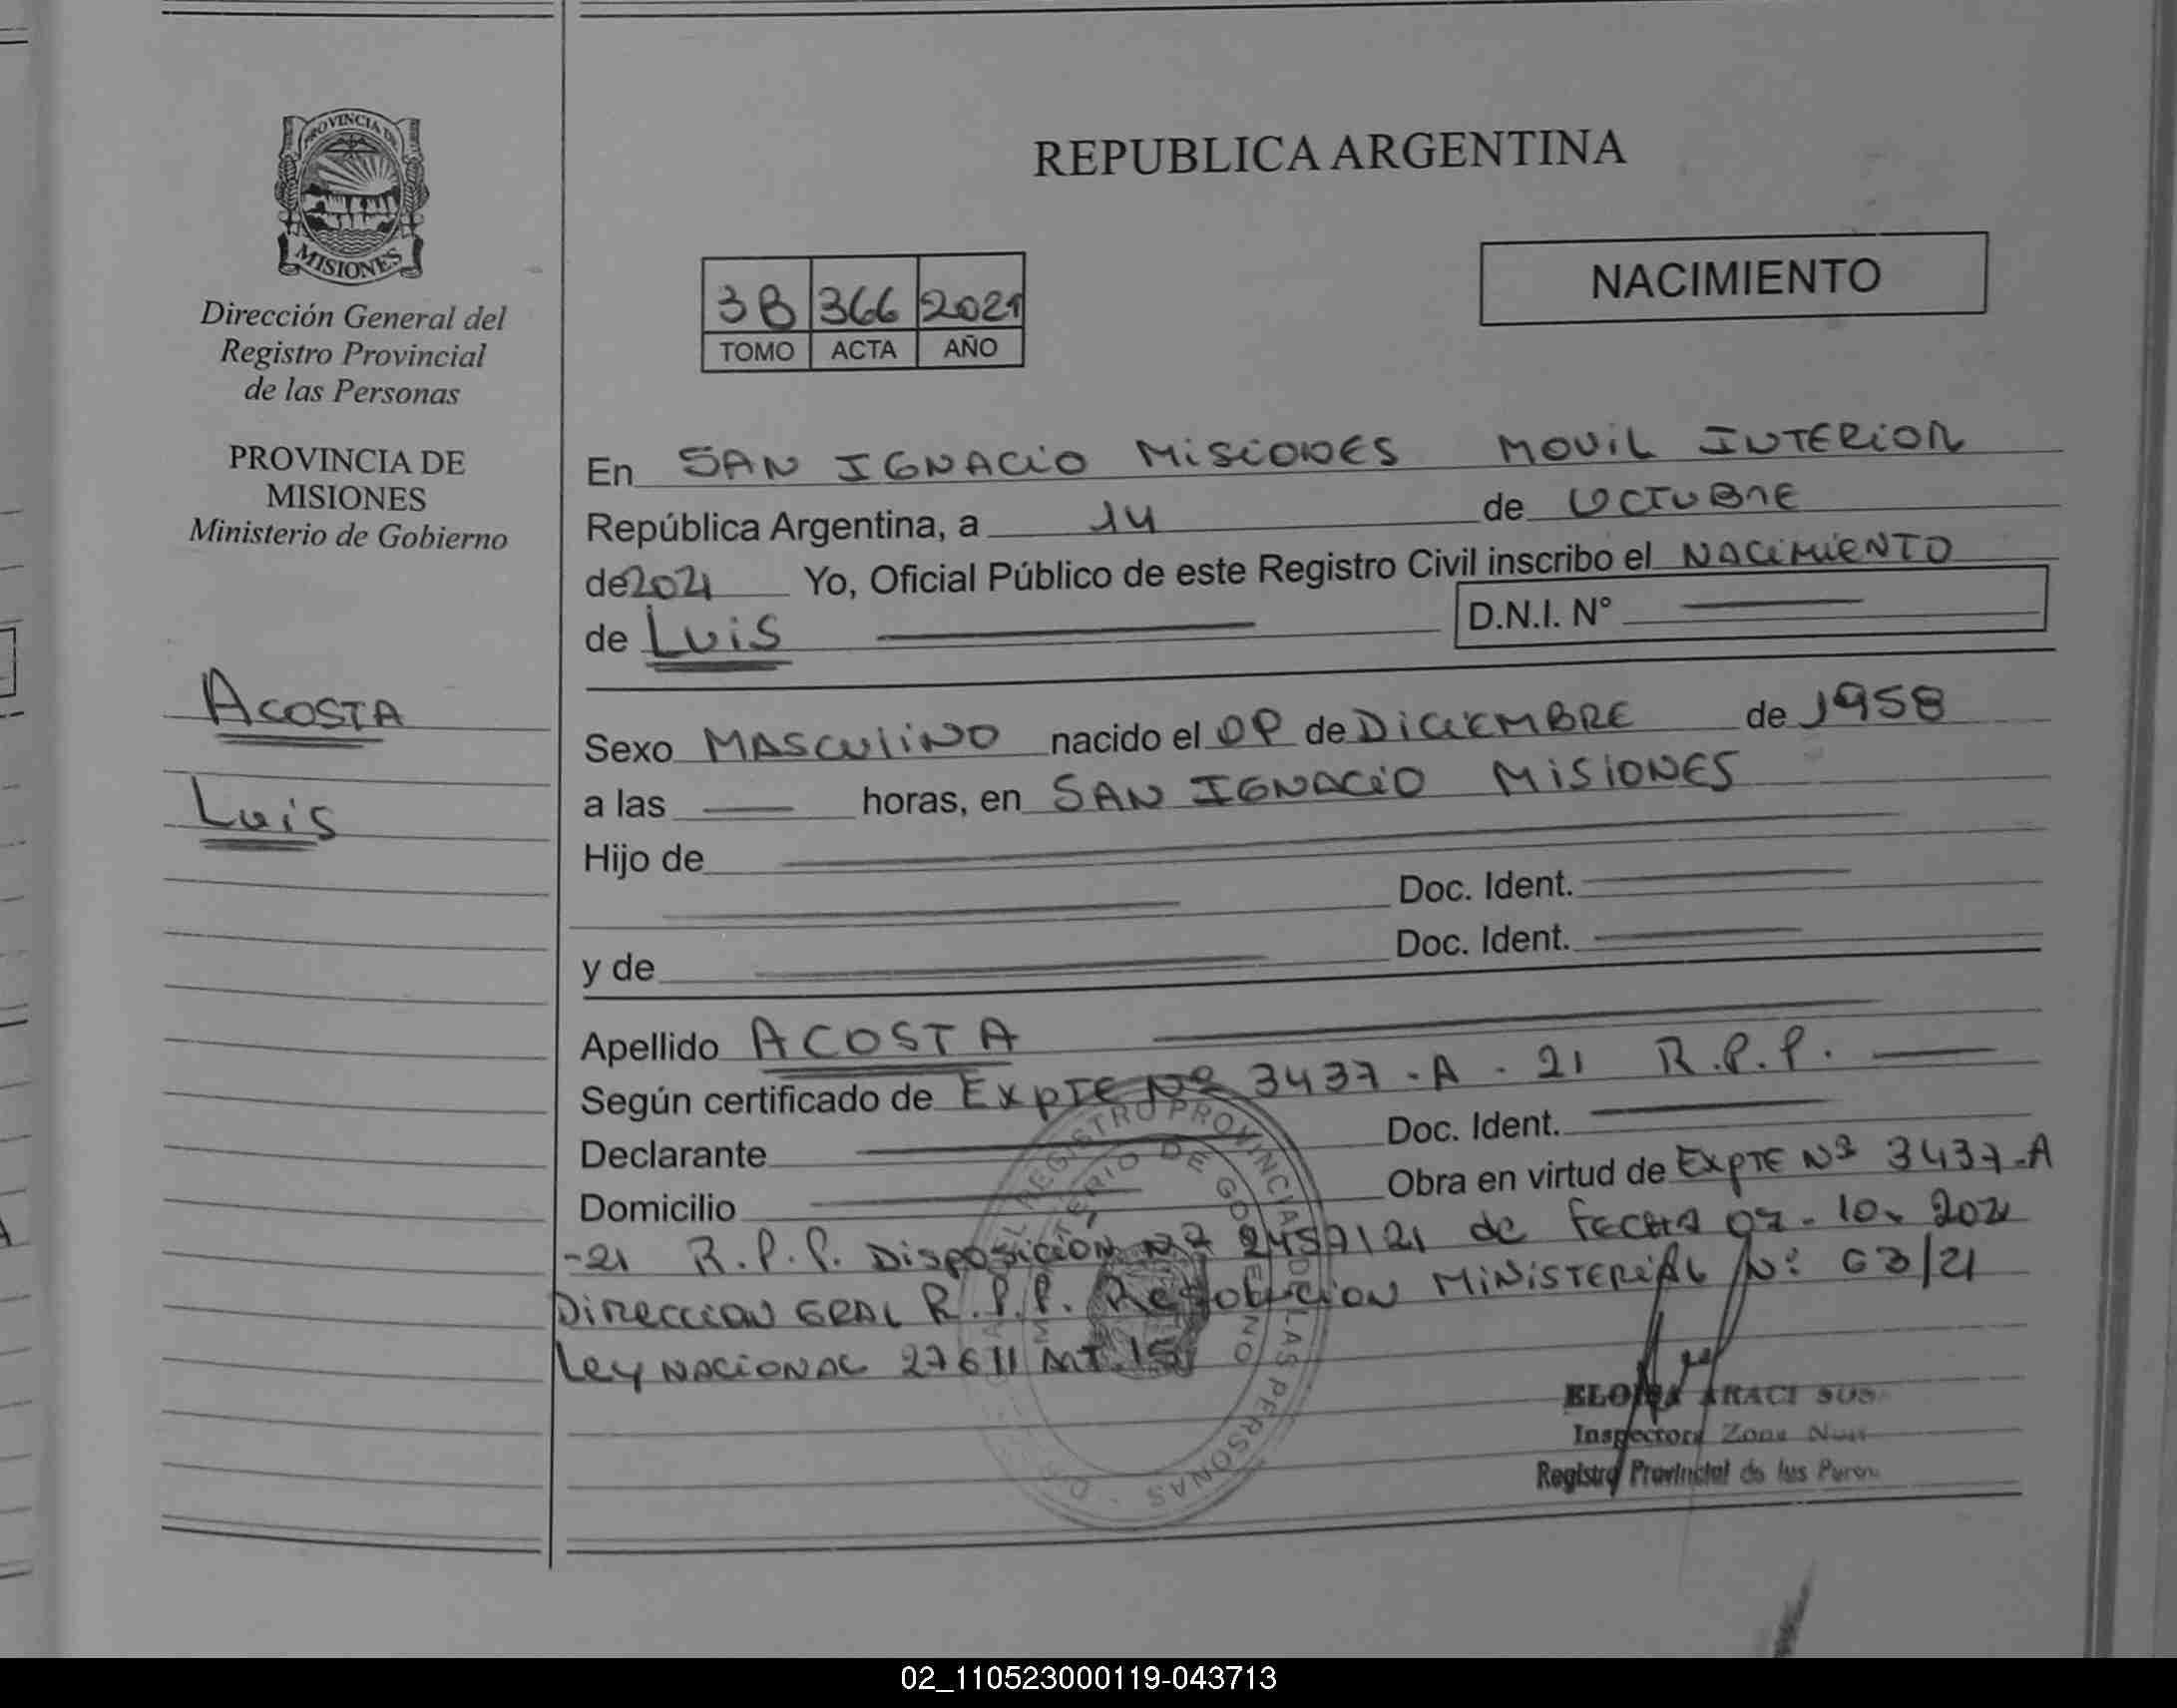 PROVINCIA DE
MISIONES
Dirección General del
Registro Provincial
de las Personas
PROVINCIA DE
MISIONES
Ministerio de Gobierno
ACOSTA
Luis
REPUBLICA ARGENTINA
3B 366 2021
TOMO ACTA AÑO
NACIMIENTO
En SAN IGNACIO MISIONES MOVIL INTERIOR
República Argentina, a 14 de OCTUBRE
de 2021 Yo, Oficial Público de este Registro Civil inscribo el NACIMIENTO
de LUIS D.N.I. N°
Sexo MASCULINO nacido el de DICIEMBRE de 1958
a las horas, en SAN IGNACIO MISIONES
Hijo de
Doc. Ident.
y de Doc. Ident.
Apellido ACOSTA
Según certificado de EXPTE Nº 3437-A-21 R.P.P.
Declarante Doc. Ident.
Domicilio Obra en virtud de EXPTE Nº 3437-A
-21 R.P.P. DISPOSICIÓN Nº de FECHA 07-10-2021
DIRECCION GRAL R.P.P. RESOLUCION MINISTERIAL Nº 63/21
Ley NACIONAL 27611 ART. 15
REGISTRO PROVINCIAL DE LAS PERSONAS
MINISTERIO DE GOBIERNO
ARACI
Inspectora Zona
Registro Provincial de las
02_110523000119-043713